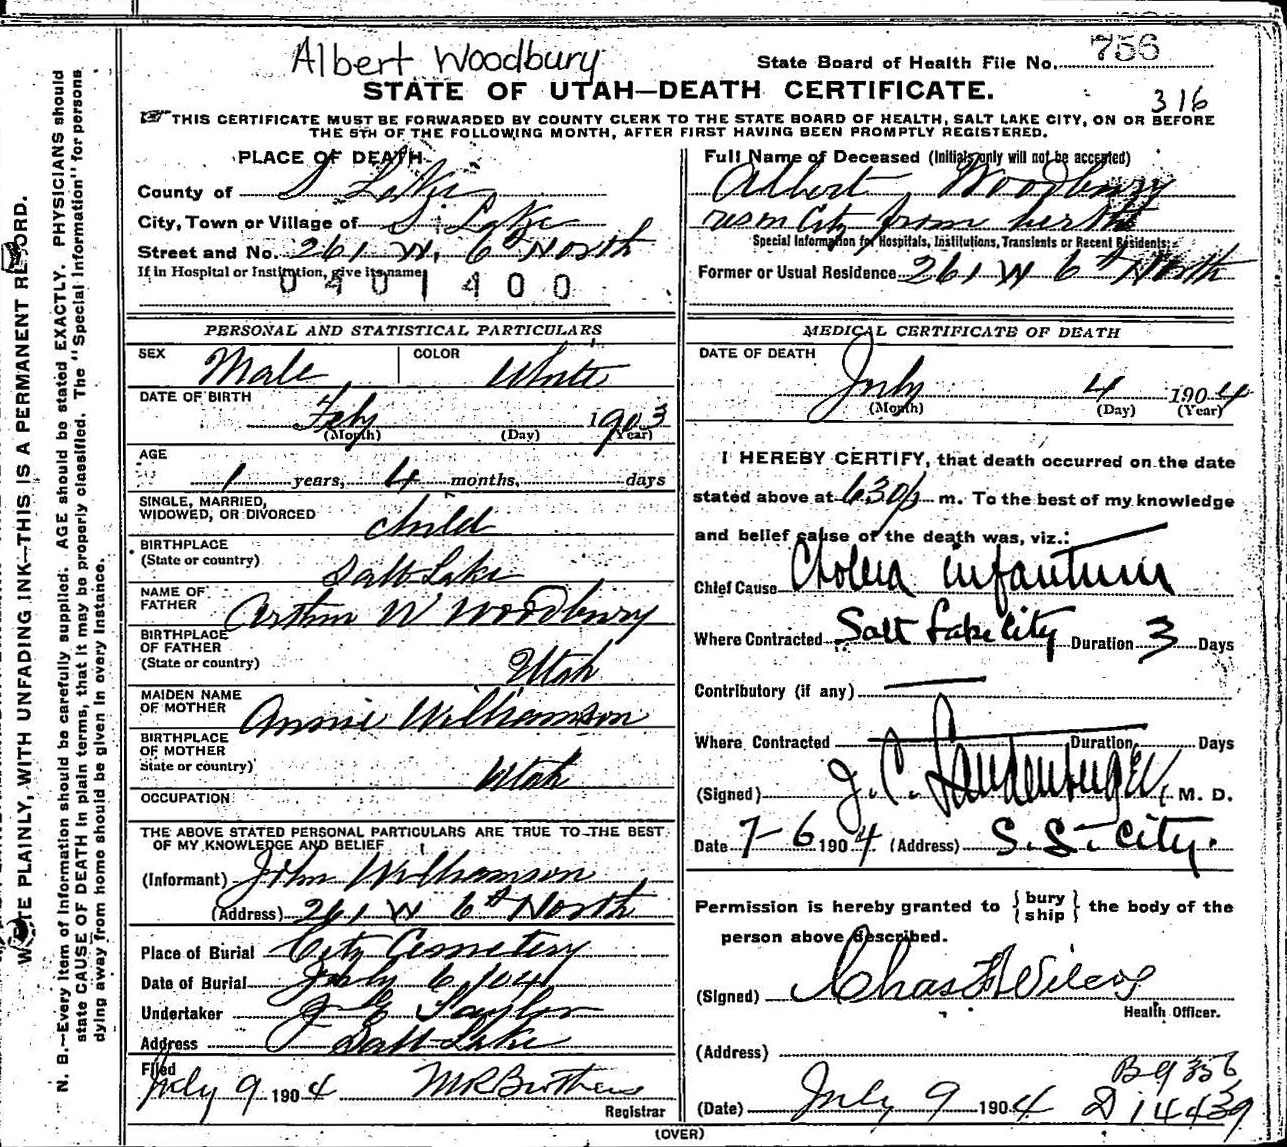 Albert Woodbury
State Board of Health File No. 756
STATE OF UTAH—DEATH CERTIFICATE.
316
THIS CERTIFICATE MUST BE FORWARDED BY COUNTY CLERK TO THE STATE BOARD OF HEALTH, SALT LAKE CITY, ON OR BEFORE
THE 5TH OF THE FOLLOWING MONTH, AFTER FIRST HAVING BEEN PROMPTLY REGISTERED.
PLACE OF DEATH
County of S Lake
City, Town or Village of S. Lake
Street and No. 261 W. 6th North
If in Hospital or Institution, give its name
0401400
Full Name of Deceased (Initials only will not be accepted)
Albert Woodbury
City from berth
Special Information for Hospitals, Institutions, Transients or Recent Residents:
Former or Usual Residence 261 W 6th North
PERSONAL AND STATISTICAL PARTICULARS
SEX Male COLOR White
DATE OF BIRTH
Feby 1903
(Month) (Day) (Year)
AGE
1 years, 4 months, days
SINGLE, MARRIED,
WIDOWED, OR DIVORCED child
BIRTHPLACE
(State or country) Salt Lake
NAME OF
FATHER Arthur W Woodbury
BIRTHPLACE
OF FATHER
(State or country) Utah
MAIDEN NAME
OF MOTHER Annie Williamson
BIRTHPLACE
OF MOTHER
State or country) Utah
OCCUPATION
THE ABOVE STATED PERSONAL PARTICULARS ARE TRUE TO THE BEST
OF MY KNOWLEDGE AND BELIEF
(Informant) John Williamson
(Address) 261 W 6th North
Place of Burial City Cemetery
Date of Burial July 6, 1904
Undertaker J E Taylor
Address Salt Lake
Filed
July 9 1904 M R Brothers
Registrar
MEDICAL CERTIFICATE OF DEATH
DATE OF DEATH
July 4 1904
(Month) (Day) (Year)
I HEREBY CERTIFY, that death occurred on the date
stated above at 630 p m. To the best of my knowledge
and belief cause of the death was, viz.:
Chief Cause Cholera infantum
Where Contracted Salt Lake City Duration 3 Days
Contributory (if any)
Where Contracted Duration Days
(Signed) J. C. Landenberger, M. D.
Date 7-6 1904 (Address) S. L. City.
Permission is hereby granted to {bury
ship} the body of the
person above described.
(Signed) Chas F Wilcox
Health Officer.
(Address)
B 9 356
(Date) July 9 1904 D 14439
(OVER)
WRITE PLAINLY, WITH UNFADING INK—THIS IS A PERMANENT RECORD.
N. B.—Every item of information should be carefully supplied. AGE should be stated EXACTLY. PHYSICIANS should
state CAUSE OF DEATH in plain terms, that it may be properly classified. The "Special Information" for persons
dying away from home should be given in every instance.